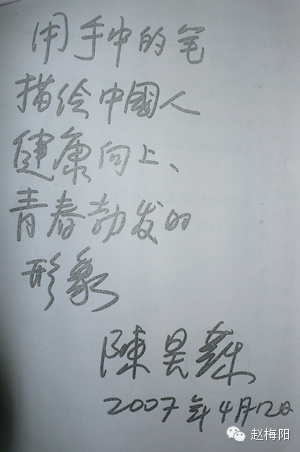 用手中的笔
描绘中國人
健康向上、
青春勃发的
形象
陳昊蘇
2007年4月12日
赵梅阳